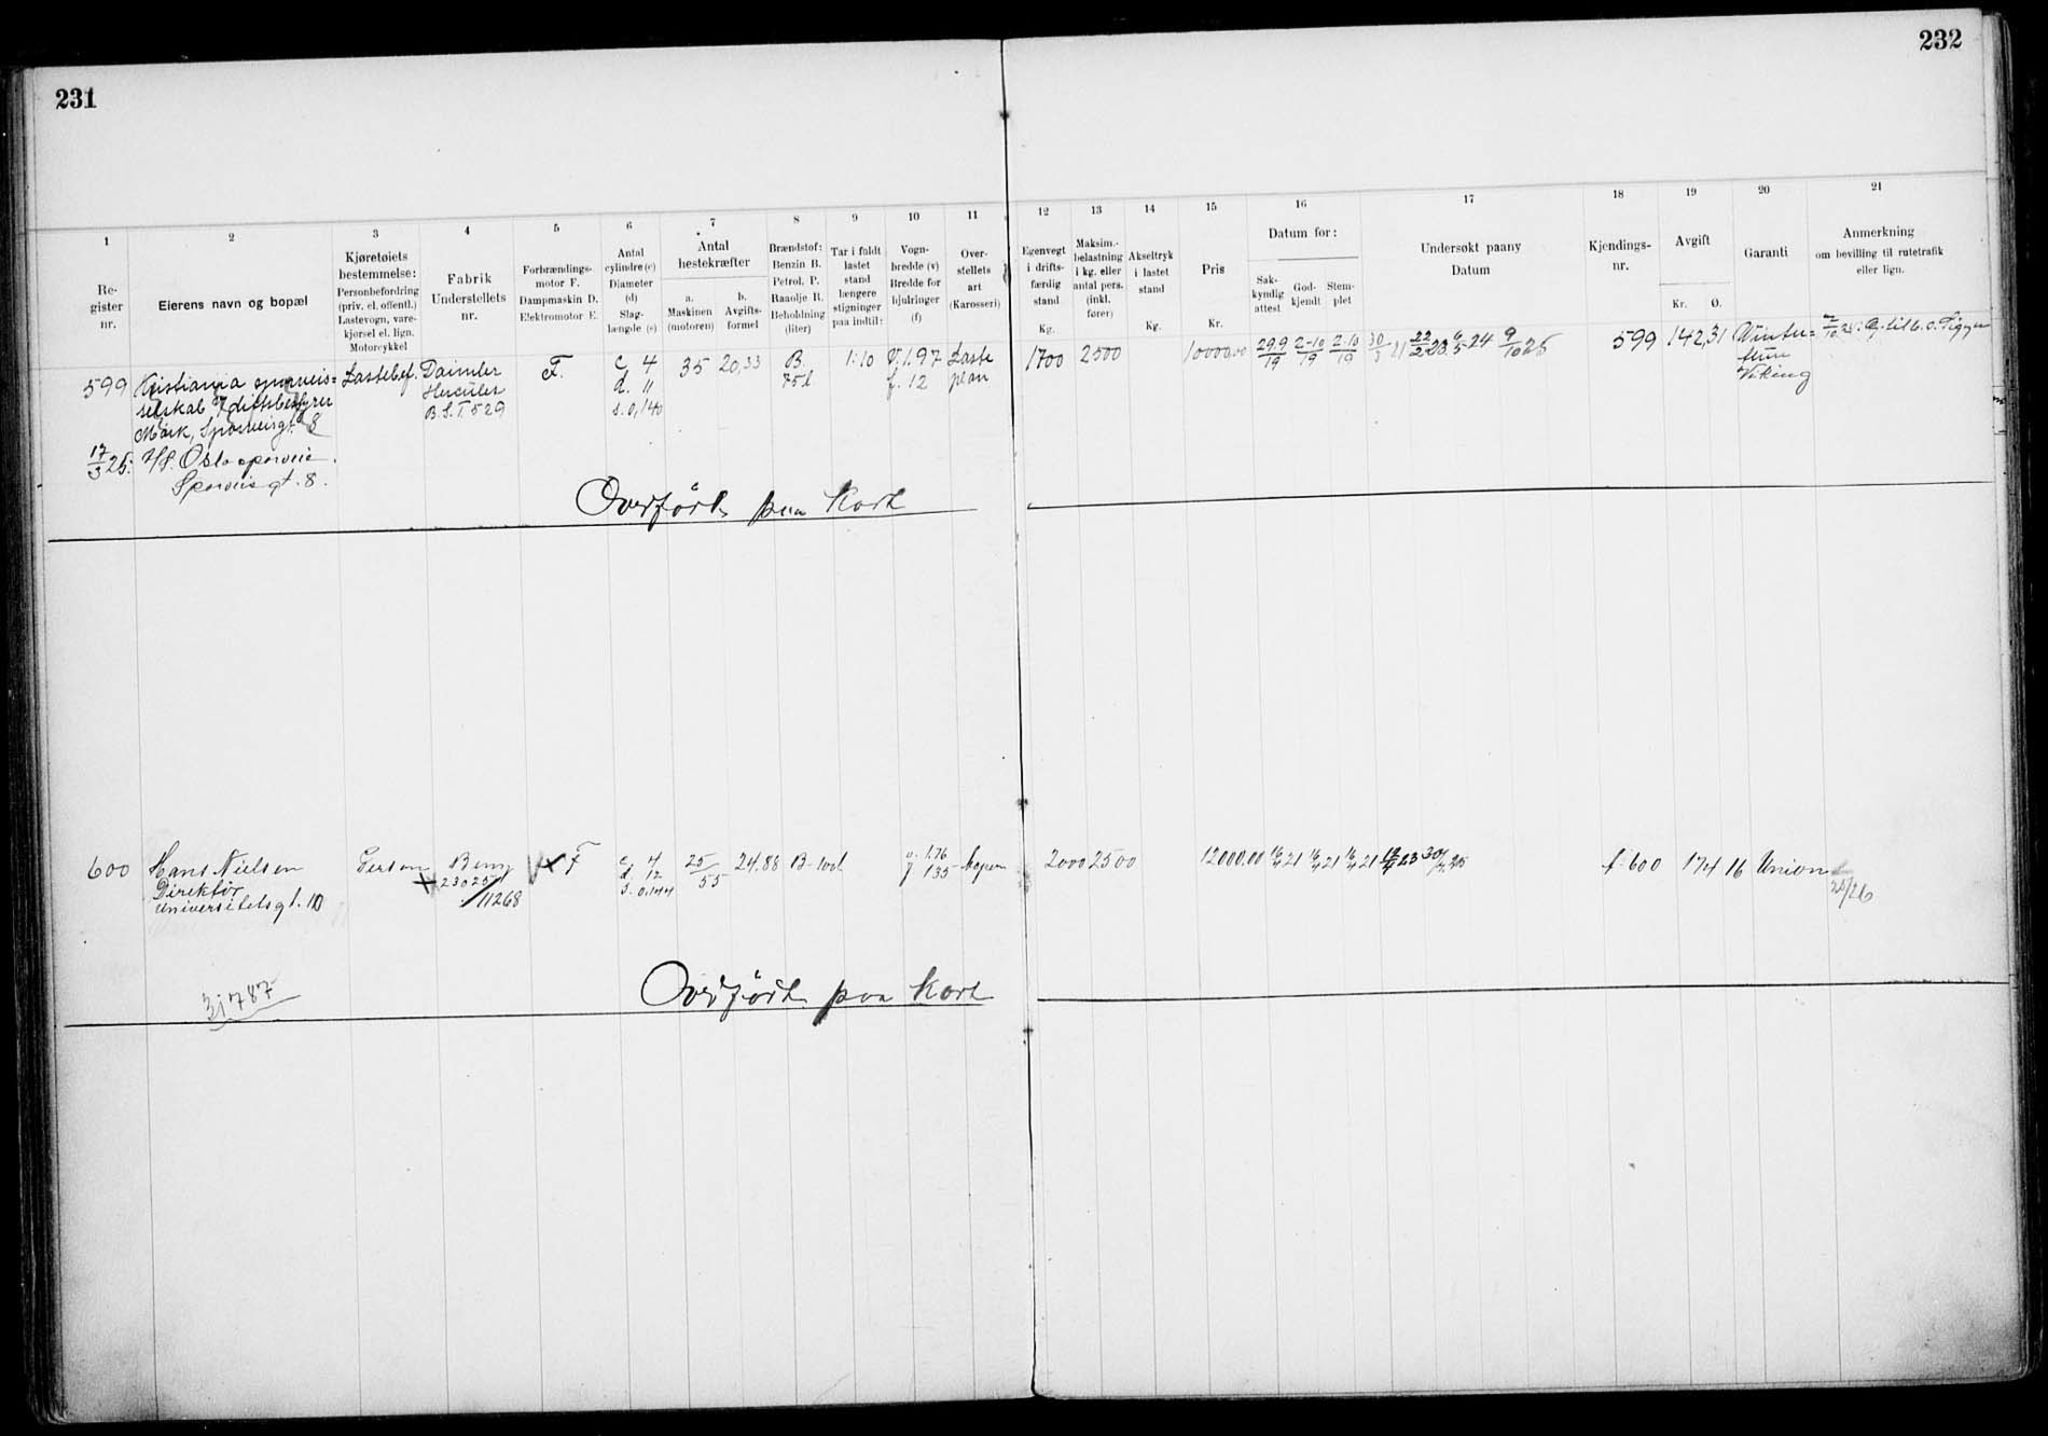 231
232
1 2 3 4 5 6 7 8 9 10 11 12 13 14 15 16 17 18 19 20 21
Re-
gister
nr.
Eierens navn og bopæl
Kjøretøiets
bestemmelse:
Personbefordring
(priv. el. offentl.)
Lastevogn, vare-
kjørsel el. lign.
Motorcykkel
Fabrik
Understellets
nr.
Forbrændings-
motor F.
Dampmaskin D.
Elektromotor E.
Antal
cylindre (c)
Diameter
(d)
Slag-
længde (s)
Antal
hestekræfter
a.
Maskinen
(motoren)
b.
Avgifts-
formel
Brændstof:
Benzin B.
Petrol. P.
Raaolje R.
Beholdning
(liter)
Tar i fuldt
lastet
stand
længere
stigninger
paa indtil:
Vogn-
bredde (v)
Bredde for
hjulringer
(f)
Over-
stellets
art
(Karosseri)
Egenvegt
i drifts-
færdig
stand
Kg.
Maksim.-
belastning
i kg. eller
antal pers.
(inkl.
fører)
Akseltryk
i lastet
stand
Kg.
Pris
Kr.
Datum for:
Sak-
kyndig
attest
God-
kjendt
Stem-
plet
Undersøkt paany
Datum
Kjendings-
nr.
Avgift
Kr. Ø.
Garanti
Anmerkning
om bevilling til rutetrafik
eller lign.
599 Kristiania sporveis= Lastebef. Daimler F. c 4 35 20,33 B. 1:10 V. 1.97 Laste 1700 2500 10000,00 29.9/19 2-10/19 2-10/19 30/3 21 22/2 23 6/5 24 9/10 25 599 142,31 Winter=
selskab v/ driftsbestyrer Hercules d. " 75 l f. 12 plan
Mørk, Sporveisgt. 8 B.S.T 529 s. 0,140 Viking
17/3 25: A/S. Oslo sporveie.
Sporveisgt. 8.
Overført paa Kort
600 Hans Nielsen Person Benz F c 4 25/55 24,88 B-100l v. 1.76 2000 2500 12000,00 f-600 174 16 Union
Direktør 23025 d. 12 f 135
Universitetsgt. 10 /11268 s. 0,144 25/26
31787
Overført paa Kort